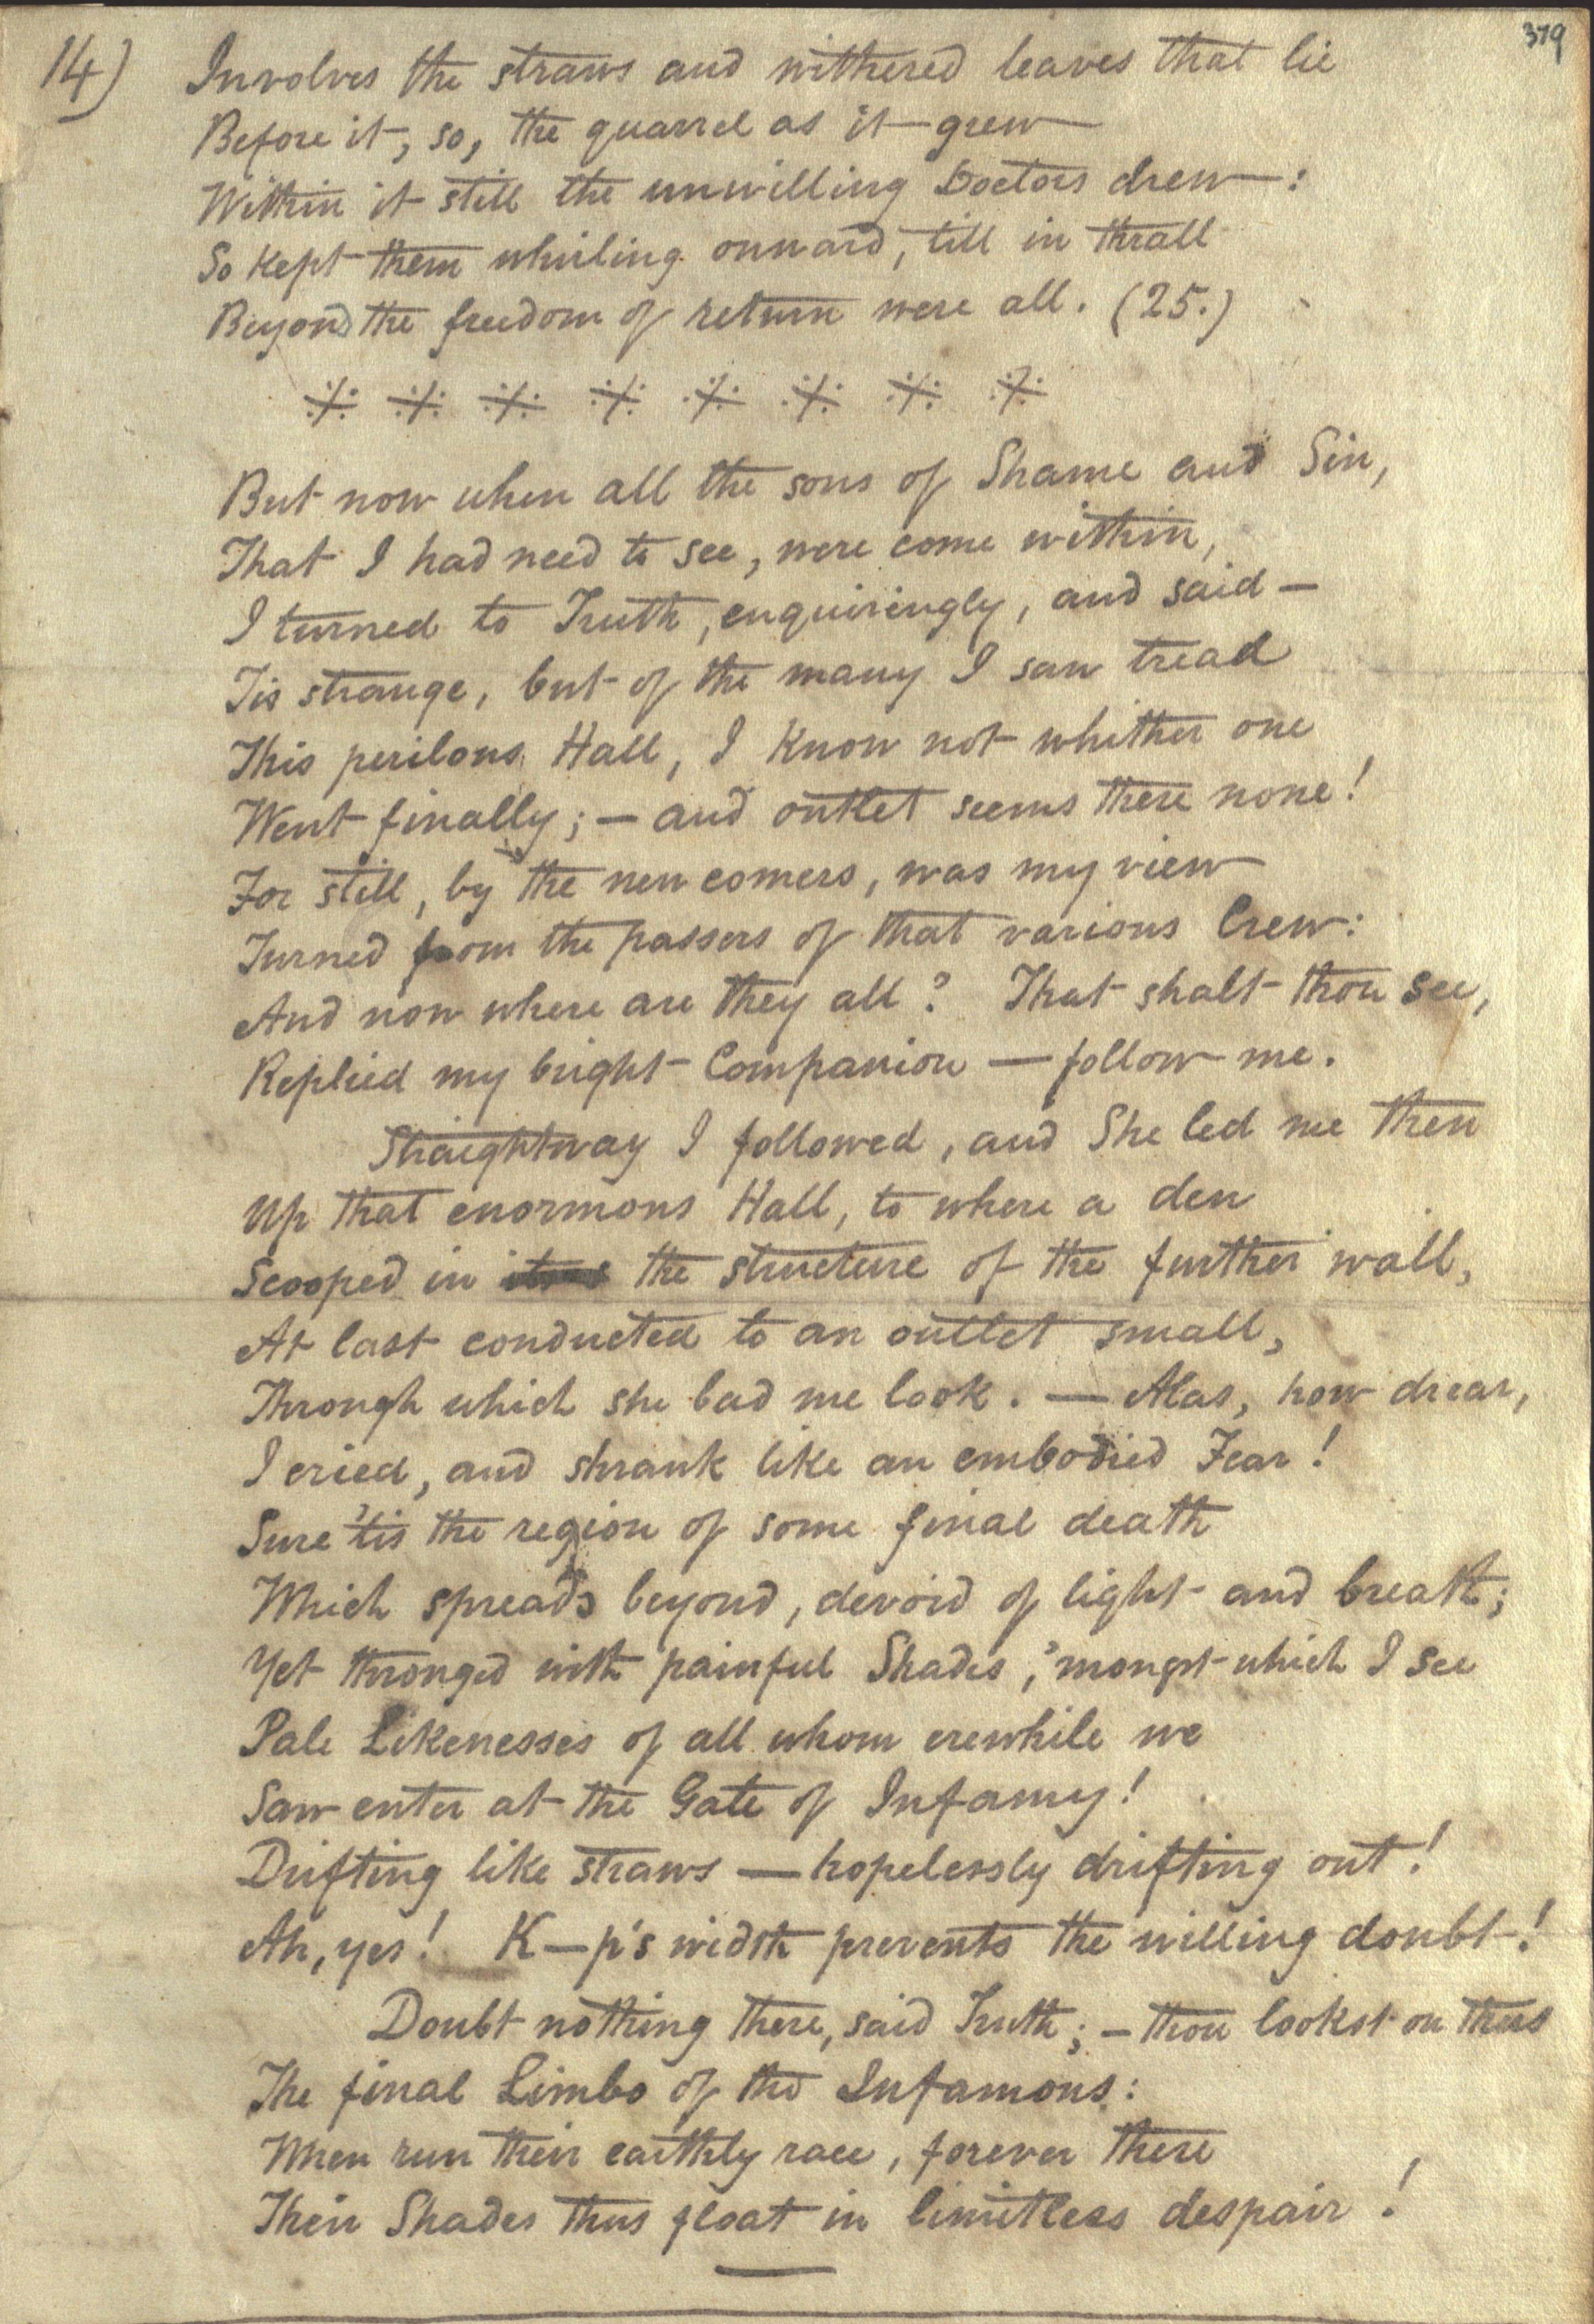 379
14)
Involves the straws and withered leaves that lie
Before it, so, the quarrel as it grew
Within it still the unwilling Doctors drew:
So kept them whirling onward, till in thrall
Beyond the freedom of return were all. (25.)
※ ※ ※ ※ ※ ※ ※ ※
But now when all the sons of Shame and Sin,
That I had need to see, were come within,
I turned to Truth, enquiringly, and said —
Tis strange, but of the many I saw tread
This perilous Hall, I know not whither one
Went finally; — and outlet seems there none!
For still, by the new comers, was my view
Turned from the passers of that various Crew:
And now where are they all? That shalt thou see,
Replied my bright Companion — follow me.
Straightway I followed, and She led me then
Up that enormous Hall, to where a den
Scooped in the structure of the further wall,
At last conducted to an outlet small,
Through which she bad me look. — Alas, how drear,
I cried, and shrank like an embodied Fear!
Sure 'tis the region of some final death
Which spreads beyond, devoid of light and breath;
Yet thronged with painful Shades, 'mongst which I see
Pale Likenesses of all whom erewhile we
Saw enter at the Gate of Infamy!
Drifting like straws — hopelessly drifting out!
Ah, yes! K—p's width prevents the willing doubt!
Doubt nothing there, said Truth; — thou lookst on thus
The final Limbo of the Infamous:
When run their earthly race, forever there
Their Shades thus float in limitless despair!